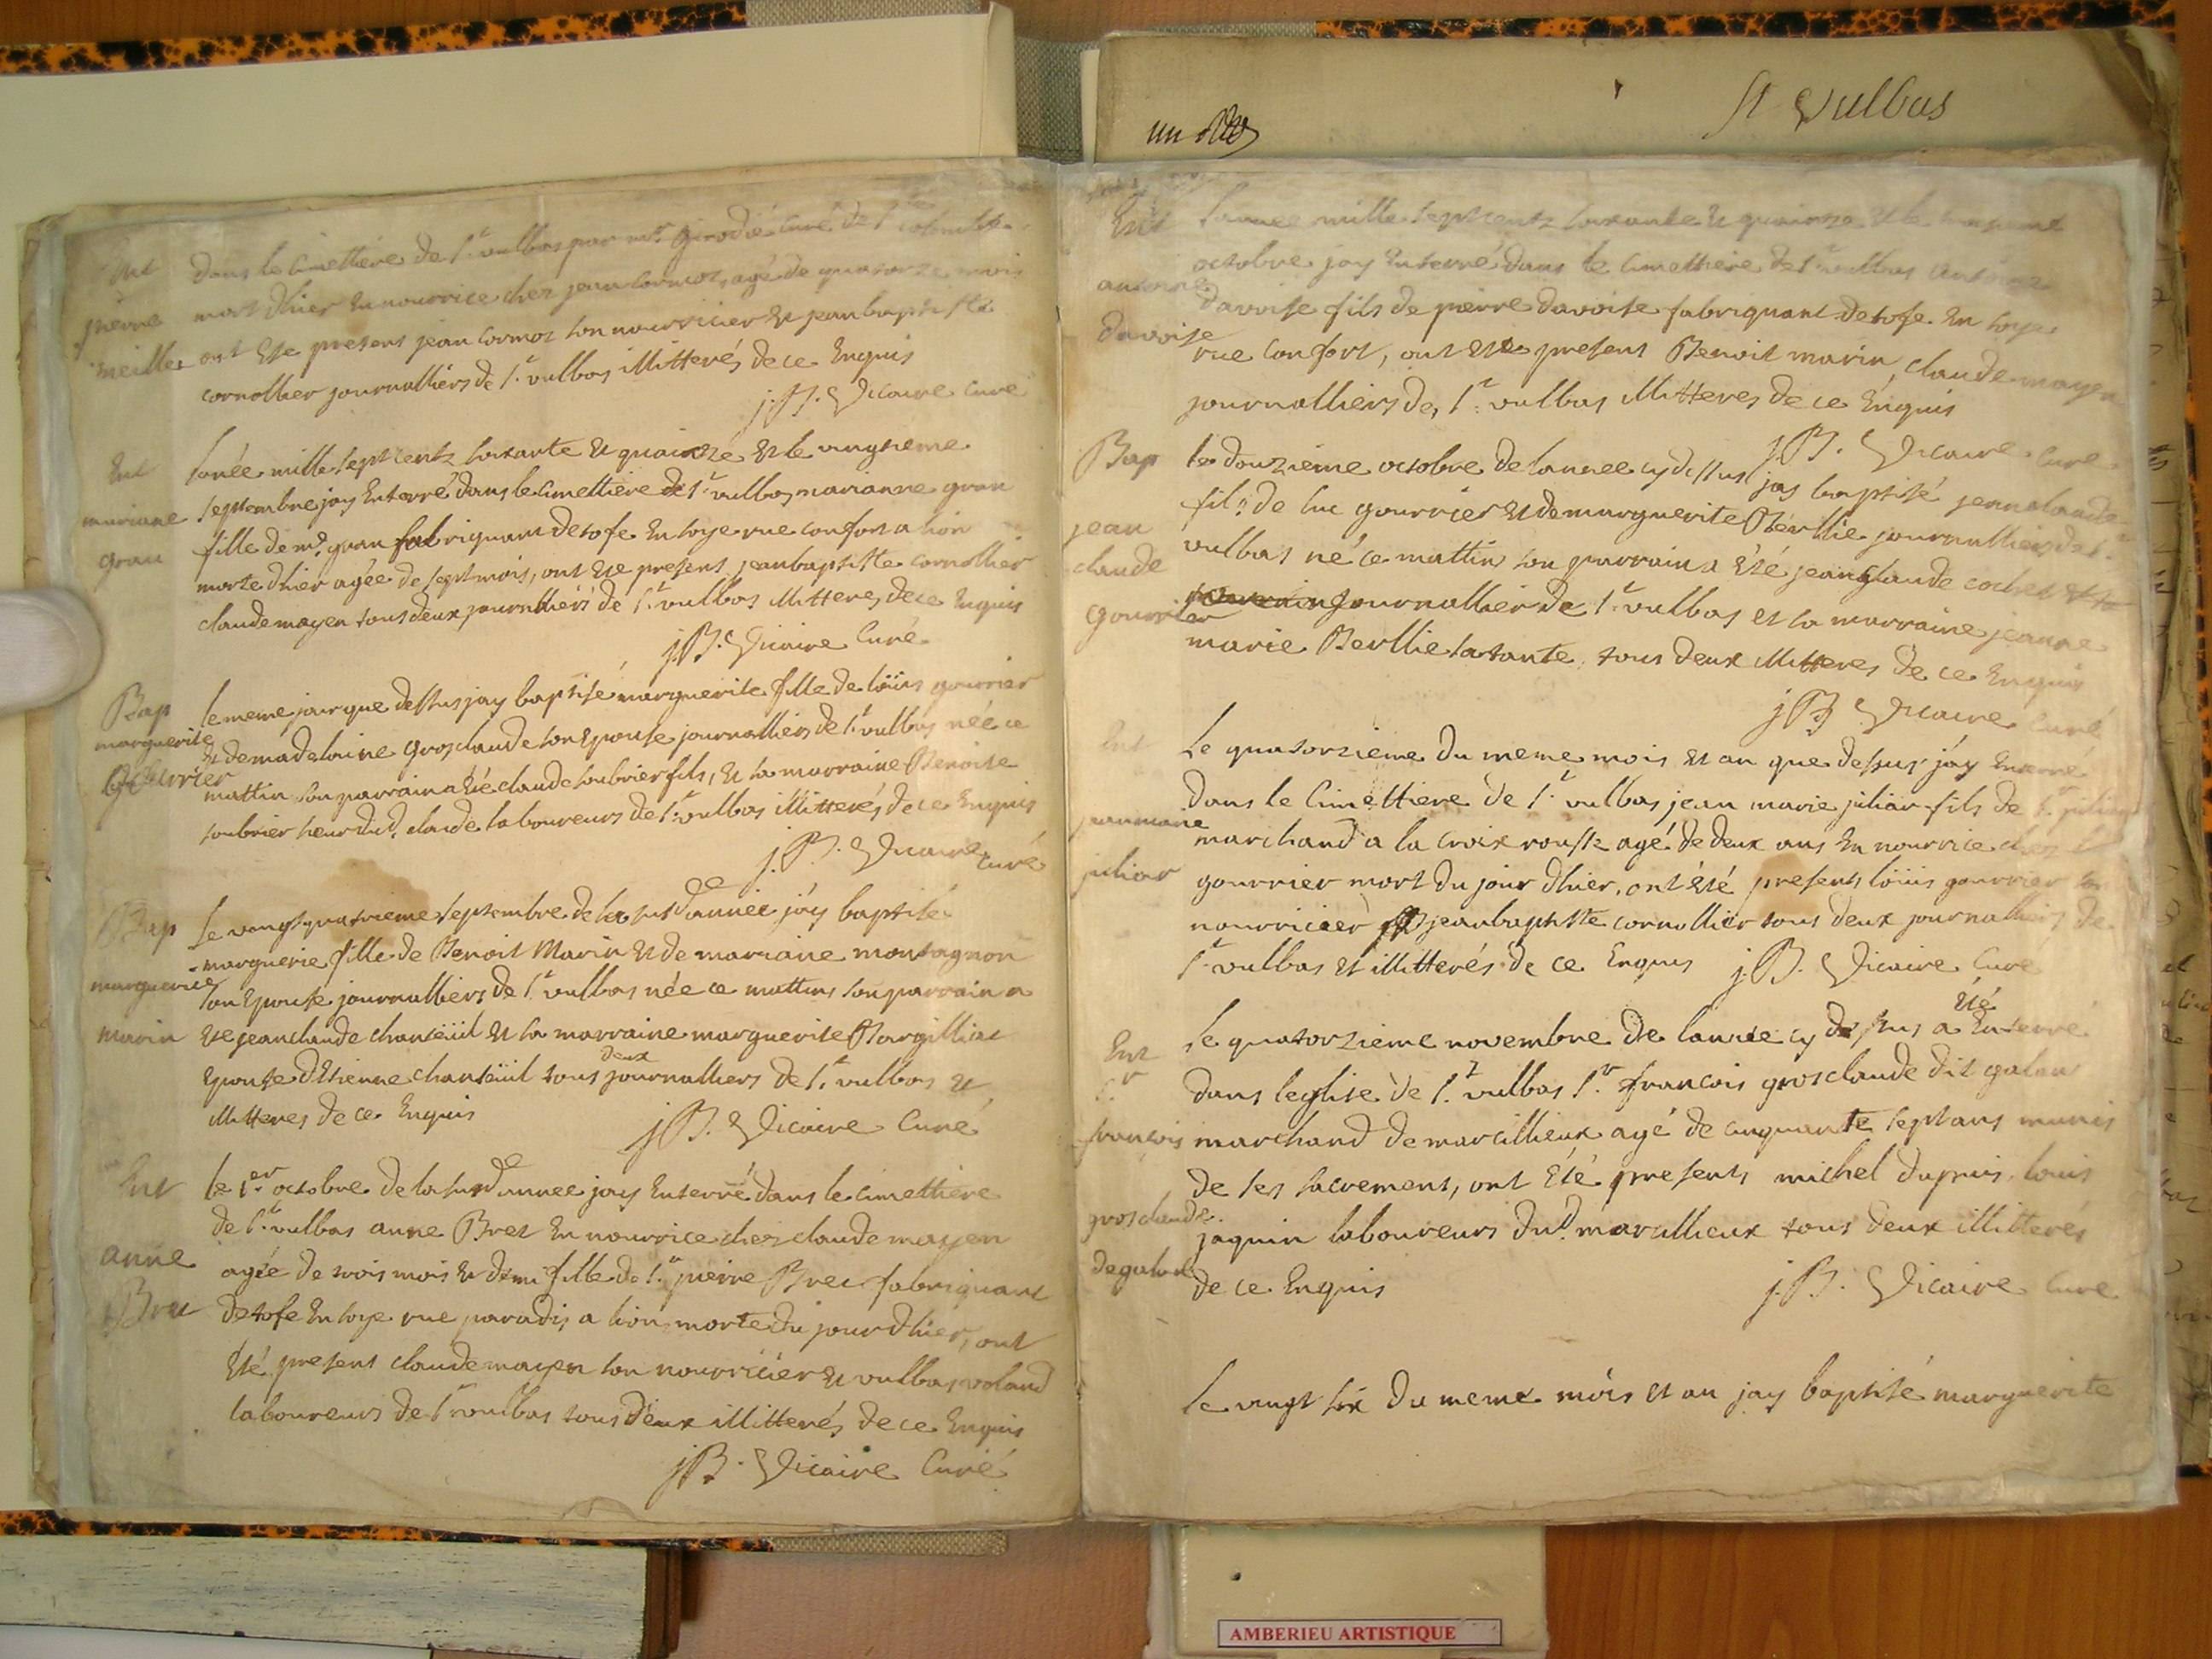 St Vulbas
Ent dans le cimettiere de St vulbas par mre Girodié curé de Ste
pierre mort dhier en nourrice chez jean cormoz, agé de quatorze mois
meiller ont été presens jean cormoz son nourricier et jean baptiste
cornollier journalliers de St vulbas illitterés de ce Enquis
j.B. Vicaire Curé
Ent lanée mille septcentz soixante et quatorze et le vingtieme
septembre jay Enterré dans le cimettiere de St vulbas marianne gran
mariane
gran
fille de mr gran fabriquant detofe En soye rue confort a lion
morte dhier agée de sept mois, ont été presens jean baptiste cornollier
claude mayen tous deux journalliers de St vulbas illitteres de ce Enquis
j.B. Vicaire Curé
Bap le meme jour que dessus jay baptisé marguerite fille de loüis gourrier
marguerite
gourrier
et de madelaine grosclaude son Epouse journalliers de St vulbas née ce
mattin son parrain a été claude soubrier fils, et sa marraine Benoite
soubrier soeur dud. claude laboureurs de St vulbas illitterés de ce Enquis
j.B. Vicaire Curé
Bap Le vingt quatrieme septembre de la susde année jáy baptisé
marguerie fille de Benoit Marin et de mariane montagnon
marguerite
marin
son Epouse journalliers de St vulbas née ce mattin son parrain a
été jean claude chanteüil et sa marraine marguerite Bargilliat
Epouse dEtienne chanteüil tous deux journalliers de St vulbas et
illitteres de ce Enquis
j.B. Vicaire Curé
Ent le 1er octobre de la susde annee jay Enterré dans le cimettiere
de St vulbas anne Bret En nourrice chez claude mayen
anne
Bret
agée de trois mois et demi fille de Sr pierre Bret fabriquant
detofe En soye rue paradis a lion morte du jour dhier, ont
été present claude mayen son nourricier et vulbas voland
laboureurs de St vulbas tous deux illitterés de ce Enquis
j.B. Vicaire Curé
Ent lannee mille septcentz soixante et quatorze et le
octobre jay Enterré dans le cimettiere de St vulbas antoine
antoine
davoise
davoise fils de pierre davoise fabriquant detofe En soye
rue confort, ont été present Benoit marin, claude mayen
journalliers de St vulbas illitteres de ce Enquis
j.B. Vicaire Curé
Bap le douzieme octobre de lannee cy dessus jay baptisé jean claude
jean
claude
gourrier
fils de luc gourrier et de marguerite Berllie journalliers de St
vulbas né ce mattin son parrain a été jean claude cochet
journallier de St vulbas et sa marraine jeanne
marie Berllie sa tante, tous deux illitteres de ce Enquis
j.B. Vicaire Curé
Ent Le quatorzieme du meme mois et an que dessus jáy Enterré
dans le cimettiere de St vulbas jean marie juliar fils de Sr juliar
jean marie
juliar
marchand a la croix rousse agé de deux ans En nourrice chez
gourrier mort du jour dhier, ont été presents loüis gourrier son
nourricier et jean baptiste cornollier tous deux journalliers de
St vulbas et illitterés de ce Enquis j.B. Vicaire Curé
Ent le quatorzieme novembre de lannee cy dessus a été Enterré
Sr
francois
grosclaude
de galand
dans leglise de St vulbas Sr francois grosclaude dit galand
marchand de marcillieux agé de cinquante sept ans munis
de ses sacrement, ont été presents michel dupuis, louis
jaquin laboureurs dud. marcillieux tous deux illitterés
de ce Enquis
j.B. Vicaire Curé
le vingt six du meme mois et an jay baptisé marguerite
AMBERIEU ARTISTIQUE